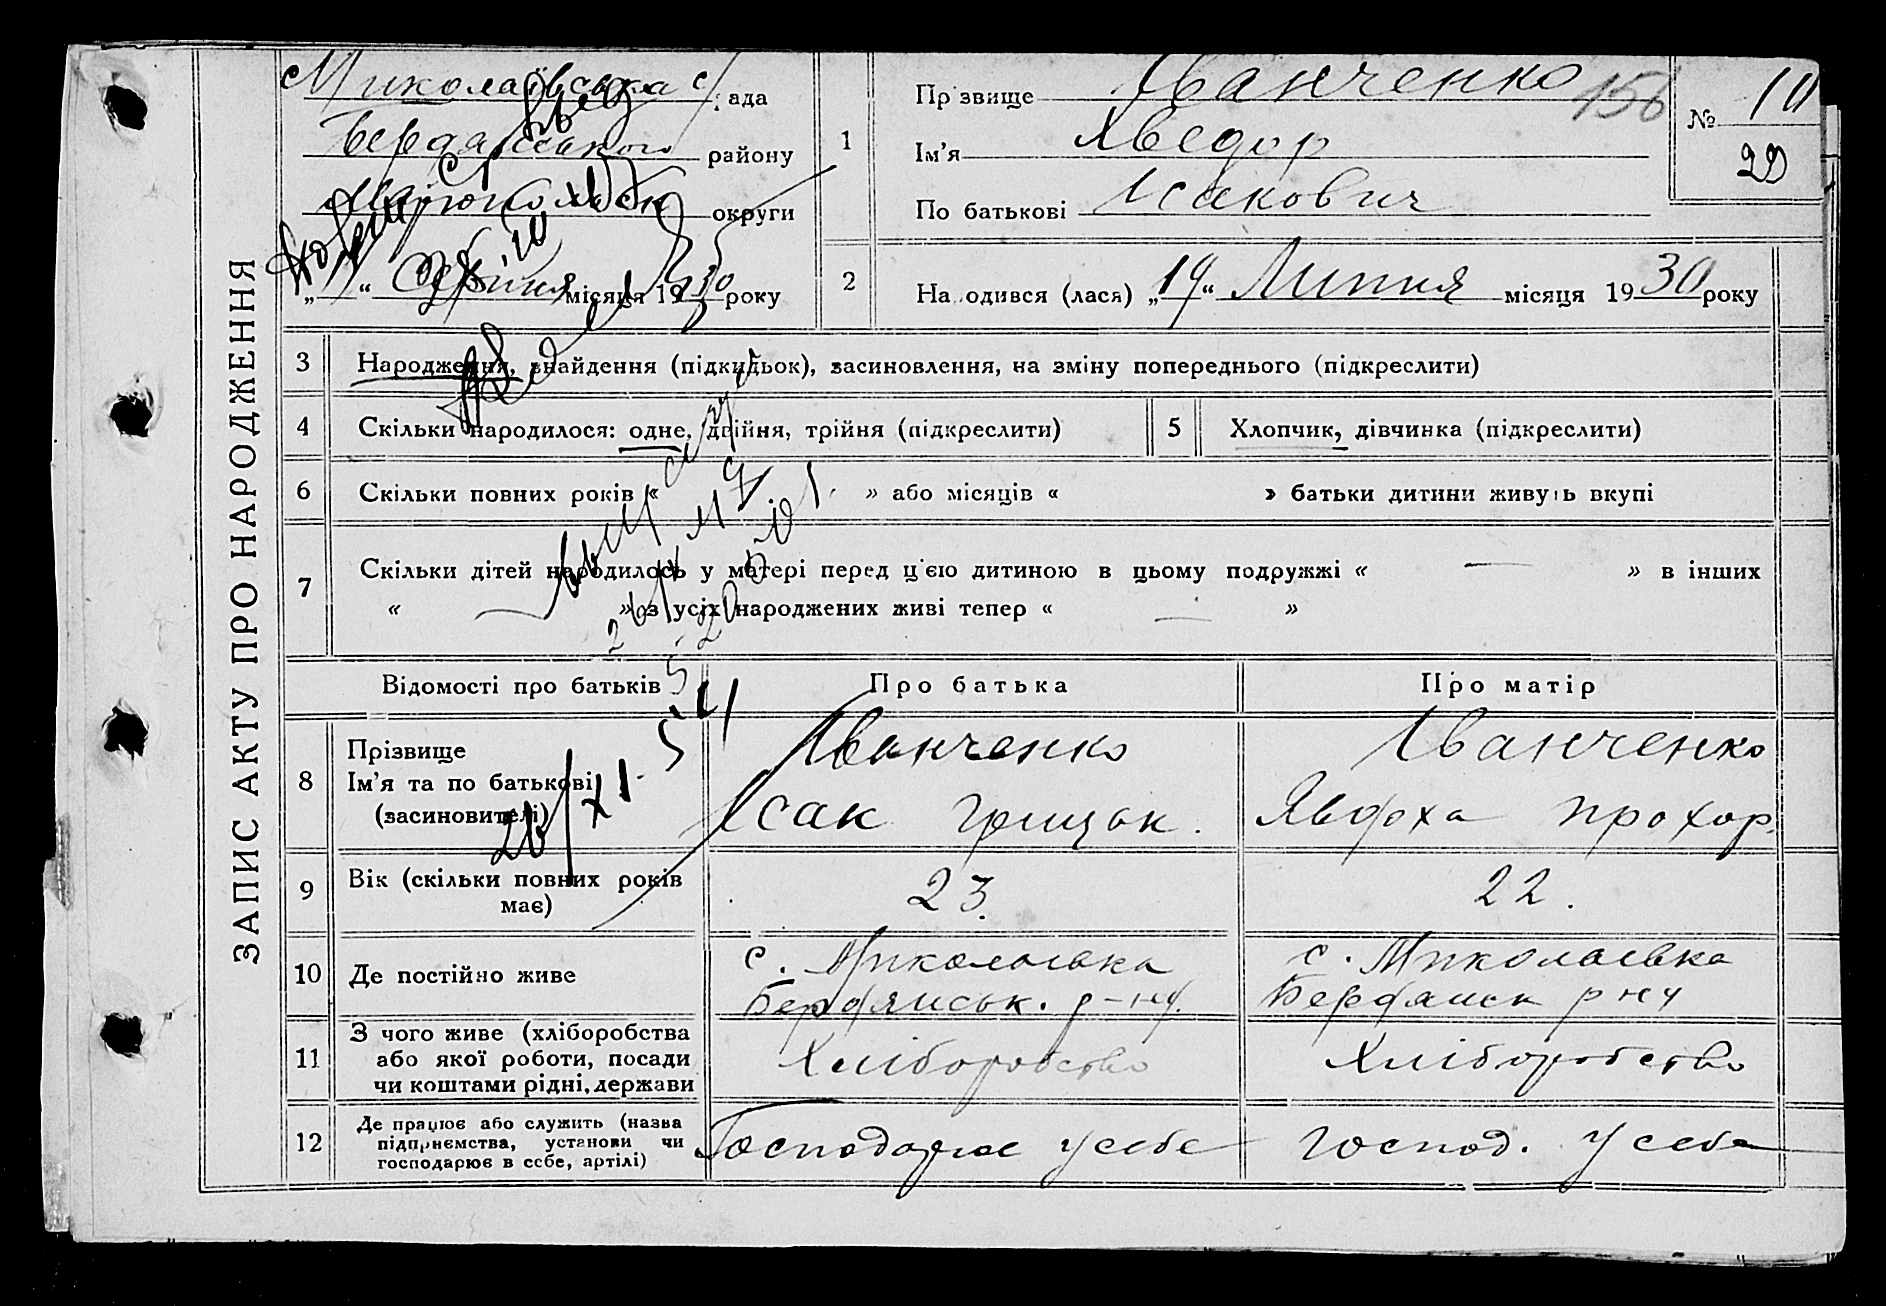 ЗАПИС АКТУ ПРО НАРОДЖЕННЯ
Миколаївська с/рада
Бердянського району
Маріюпольськ округи
„11“ Серпня місяця 1930 року
1
Прізвище Іванченко
Ім’я Хведор
По батькові Ісакович
156
№ 10
20
2
Народився (лася) „19“ Липня місяця 1930 року
3 Народження, знайдення (підкидьок), засиновлення, на зміну попереднього (підкреслити)
4 Скільки народилося: одне, двійня, трійня (підкреслити)
5 Хлопчик, дівчинка (підкреслити)
6 Скільки повних років « » або місяців « » батьки дитини живуть вкупі
7 Скільки дітей народилось у матері перед ц'єю дитиною в цьому подружжі « — » в інших
« — » з усіх народжених живі тепер « — »
Відомості про батьків Про батька Про матір
8 Прізвище
Ім’я та по батькові
(засиновителі)
Іванченко
Ісак Грицьк.
Іванченко
Явдоха Прохор.
26/XI-54
9 Вік (скільки повних років
має)
23.
22.
10 Де постійно живе
с. Миколаївка
Бердянськ. р-ну.
с. Миколаївка
Бердянськ рну
11 З чого живе (хліборобства
або якої роботи, посади
чи коштами рідні, держави
Хліборобство
Хліборобство
12 Де працює або служить (назва
підприємства, установи чи
господарює в себе, артілі)
Господарює у себе
Господ. у себе